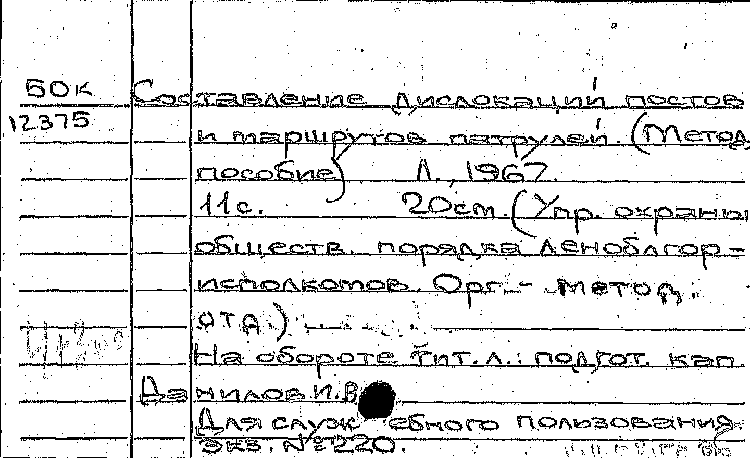 БОК Составление дислокаций постов
12375 и маршрутов патрулей. (Метод.
пособие) Л., 1967.
11с. 20см. (Упр. охраны
обществ. порядка Леноблгор-
исполкомов. Орг.- метод.
отд.)
На обороте тит. л.: подгот. кап.
Данилов И.В.
Для служебного пользования.
Экз. №220.